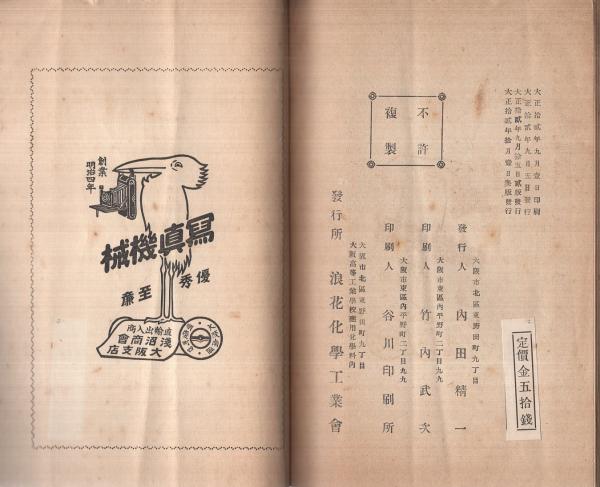 大正拾貳年九月壹日印刷
大正拾貳年九月五日發行
大正拾貳年九月拾五日貳版發行
大正拾貳年拾月壹日參版發行
不許
複製
定價金五拾錢
大阪市北區東野田町九丁目
發行人 內田精一
大阪市東區內平野町二丁目九九
印刷人 竹內武次
大阪市東區內平野町二丁目九九
印刷人 谷川印刷所
大阪市北區東野田町九丁目
大阪高等工業學校應用化學科內
發行所 浪花化學工業會
創業
明治四年
寫眞機械
優秀
至廉
直輸出入商
淺沼商會
大阪支店